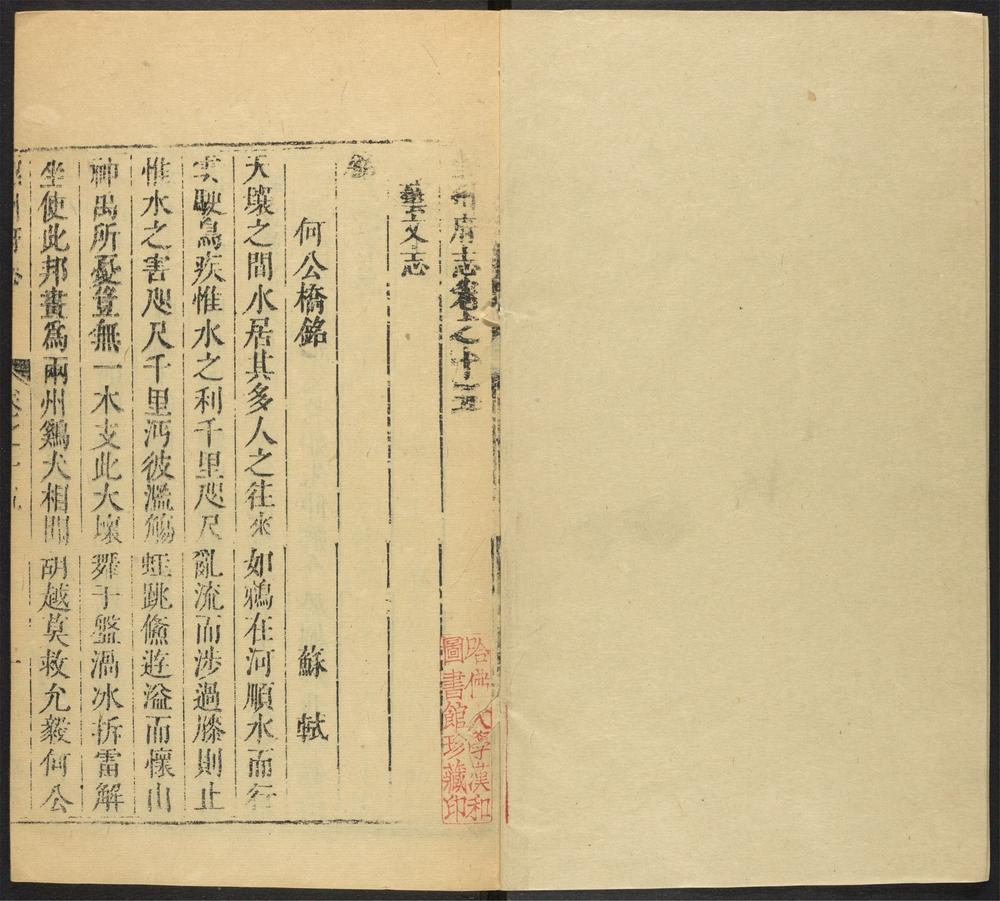 州府志卷之十五
藝文志
銘
何公橋銘 蘇軾
天壤之間水居其多人之往來如鵜在河順水而行
雲駛鳥疾惟水之利千里咫尺亂流而涉過膝則止
惟水之害咫尺千里沔彼濫觴蛙跳鯈遊溢而懷山
神禹所憂豈無一木支此大壞舞于盤渦冰拆雷解
坐使此邦畫爲兩州鷄犬相聞胡越莫救允毅何公
哈佛大學漢和
圖書館珍藏印